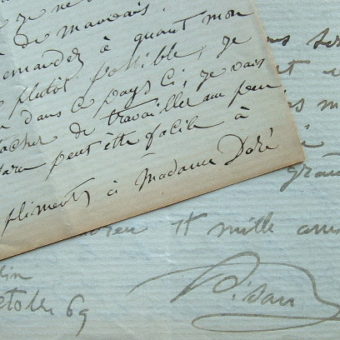 je ne
de mauvais.
demandez à quant mon
plutôt possible, je
dans ce pays ci; je vais
tacher de travailler un peu
peut être facile à
pliments à Madame Doré
us ser
et
us m
a
grand
11 mille ami
Pisan
lin
octobre 69